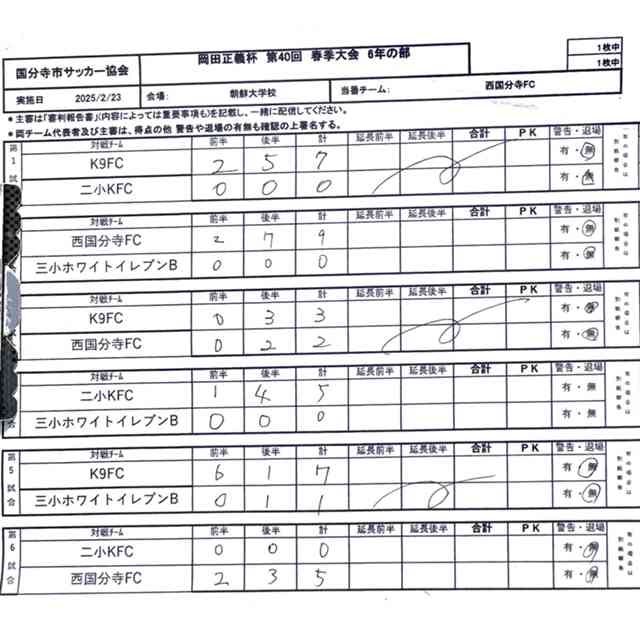 国分寺市サッカー協会
岡田正義杯 第40回 春季大会 6年の部
1枚中
1枚中
実施日 2025/2/23 会場: 朝鮮大学校 当番チーム: 西国分寺FC
* 主審は「審判報告書」(内容によっては重要事項も)を記載し、一緒に配信してください。
* 両チーム代表者及び主審は、得点の他 警告や退場の有無も確認の上署名する。
第1試 対戦チーム 前半 後半 計 延長前半 延長後半 合計 PK 警告・退場
K9FC 2 5 7 有・無
二小KFC 0 0 0 有・無
対戦チーム 前半 後半 計 延長前半 延長後半 合計 PK 警告・退場
西国分寺FC 2 7 9 有・無
三小ホワイトイレブンB 0 0 0 有・無
対戦チーム 前半 後半 計 延長前半 延長後半 合計 PK 警告・退場
K9FC 0 3 3 有・無
西国分寺FC 0 2 2 有・無
対戦チーム 前半 後半 計 延長前半 延長後半 合計 PK 警告・退場
二小KFC 1 4 5 有・無
三小ホワイトイレブンB 0 0 0 有・無
第5試合 対戦チーム 前半 後半 計 延長前半 延長後半 合計 PK 警告・退場
K9FC 6 1 7 有・無
三小ホワイトイレブンB 0 1 1 有・無
第6試合 対戦チーム 前半 後半 計 延長前半 延長後半 合計 PK 警告・退場
二小KFC 0 0 0 有・無
西国分寺FC 2 3 5 有・無